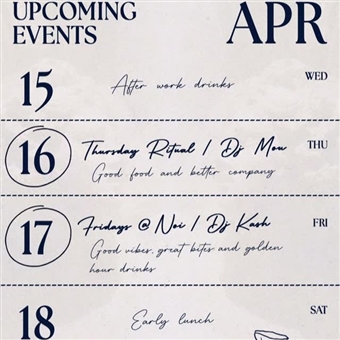 UPCOMING
EVENTS
APR
15 After work drinks WED
16 Thursday Ritual / Dj Mou THU
Good food and better company
17 Fridays @ Noi / Dj Kash FRI
Good vibes, great bites and golden
hour drinks
18 Early lunch SAT